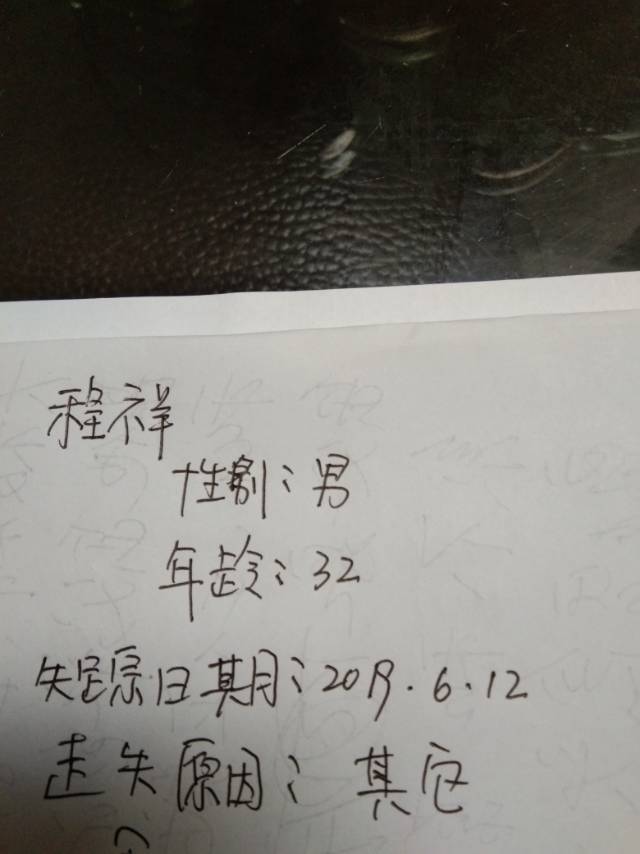 程祥
性别:男
年龄:32
失踪日期:2019.6.12
走失原因:其它